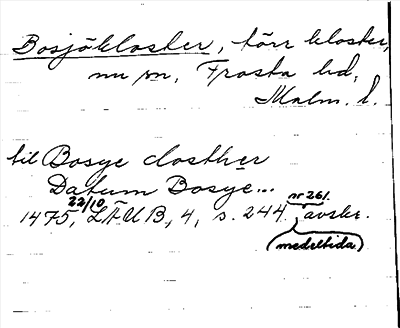 Bosjökloster, förr kloster,
nu sn, Frosta hd,
Malm. l.
till Bosye closther
Datum Bosye...
22/10 nr 261.
1475, LÄUB, 4, s. 244. avskr.
(medeltida)